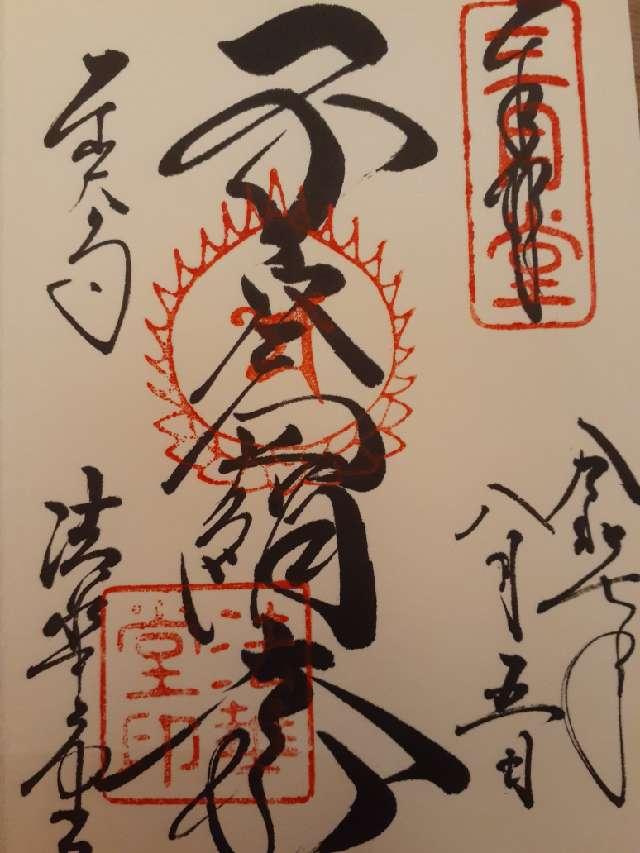 三月堂
令和七年
八月五日
不空羂索
法華堂印
東大寺
法華堂